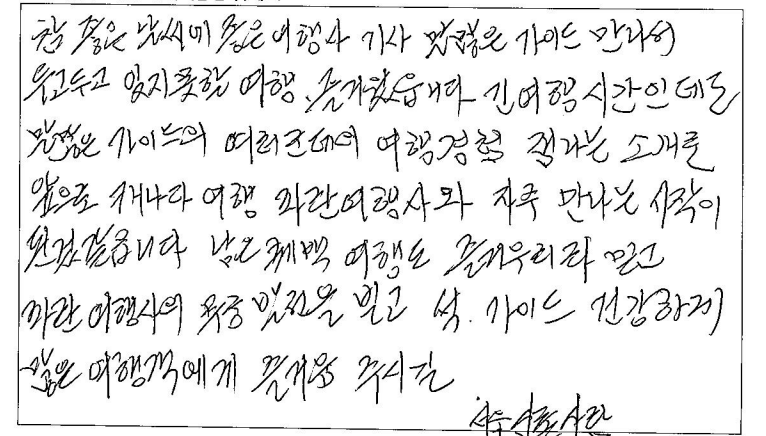 참 좋은 날씨에 좋은 여행사 기사 말많은 가이드 만나서
두고두고 잊지못할 여행, 즐거웠습니다. 긴 여행시간인데도
말많은 가이드의 여러군데의 여행경험 소개를
앞으로 캐나다 여행 파란여행사와 자주 만나는 시작이
된것같습니다 남은 퀘백 여행도 즐거우리라 믿고
파란여행사의 발전을 빌고 석. 가이드 건강하게
많은 여행객에게 즐거움 주시길